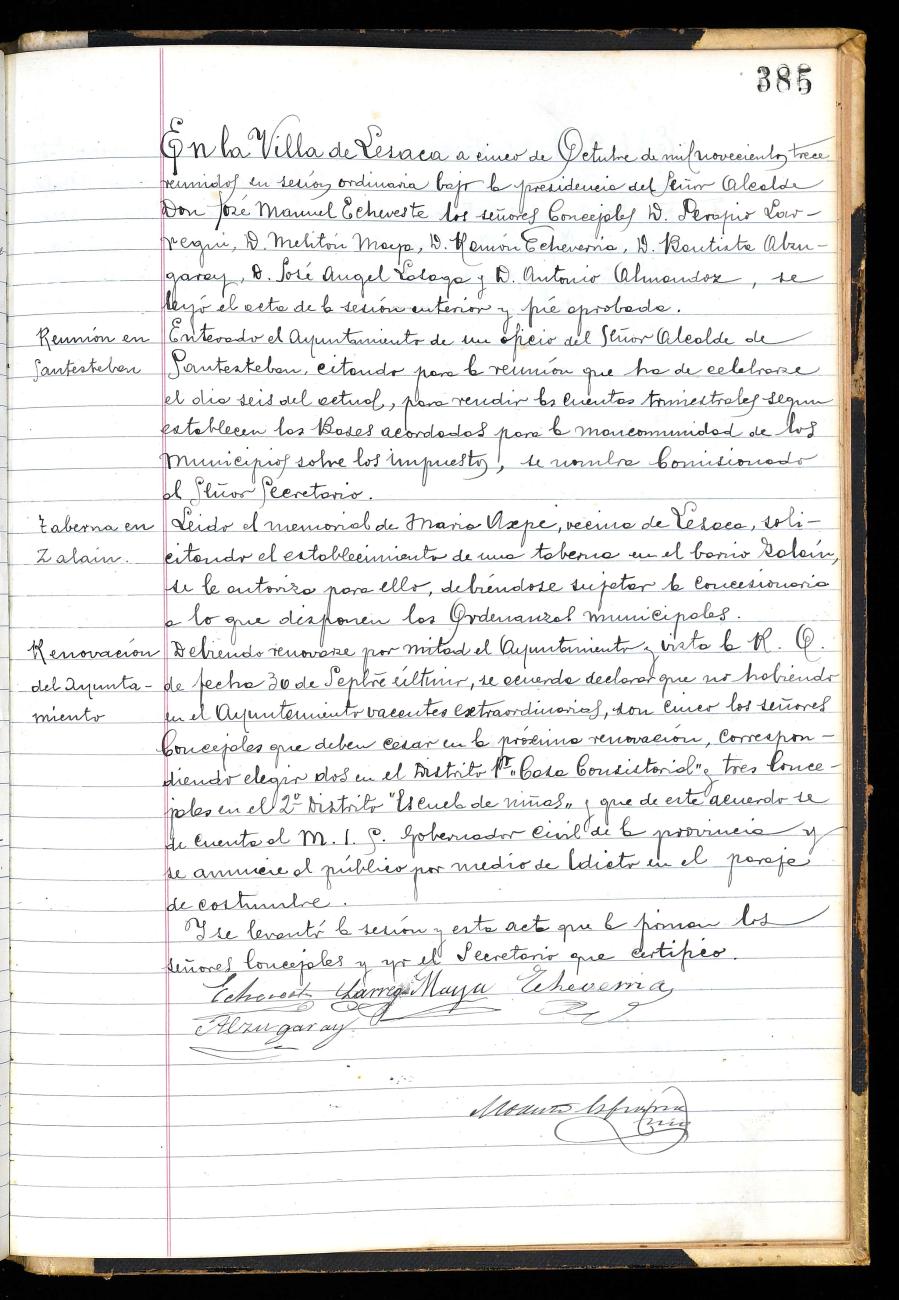 385
En la Villa de Lesaca a cinco de Octubre de mil novecientos trece
reunidos en sesión ordinaria bajo la presidencia del Señor Alcalde
Don José Manuel Echeveste los señores Concejales D. Serapio Lar-
regui, D. Melitón Maya, D. Ramón Echeverria, D. Bautista Alzu-
garay, D. José Angel Lasaga y D. Antonio Almandoz, se
leyó el acta de la sesión anterior y fué aprobada.
Reunión en
Santesteban
Enterado el Ayuntamiento de un oficio del Señor Alcalde de
Santesteban, citando para la reunión que ha de celebrarse
el dia seis del actual, para rendir las cuentas trimestrales segun
establecen las Bases acordadas para la mancomunidad de los
Municipios sobre los impuestos, se nombra Comisionado
al Señor Secretario.
Taberna en
Zalain.
Leido el memorial de Maria Axpe, vecina de Lesaca, soli-
citando el establecimiento de una taberna en el barrio Zalain,
se le autoriza para ello, debiéndose sujetar la concesionaria
a lo que disponen las Ordenanzas municipales.
Renovación
del Ayunta-
miento
Debiendo renovarse por mitad el Ayuntamiento y vista la R. O.
de fecha 30 de Sepbre último, se acuerda declarar que no habiendo
en el Ayuntamiento vacantes extraordinarias, son cinco los señores
Concejales que deben cesar en la próxima renovación, correspon-
diendo elegir dos en el Distrito 1º "Casa Consistorial" y tres Conce-
jales en el 2º Distrito "Escuela de niñas" y que de este acuerdo se
de cuenta al M. I. S. Gobernador Civil de la provincia y
se anuncie al público por medio de Edicto en el paraje
de costumbre.
Y se levantó la sesión y esta acta que la firman los
señores Concejales y yo el Secretario que certifico.
Echeveste Larregui Maya Echeverria
Alzugaray